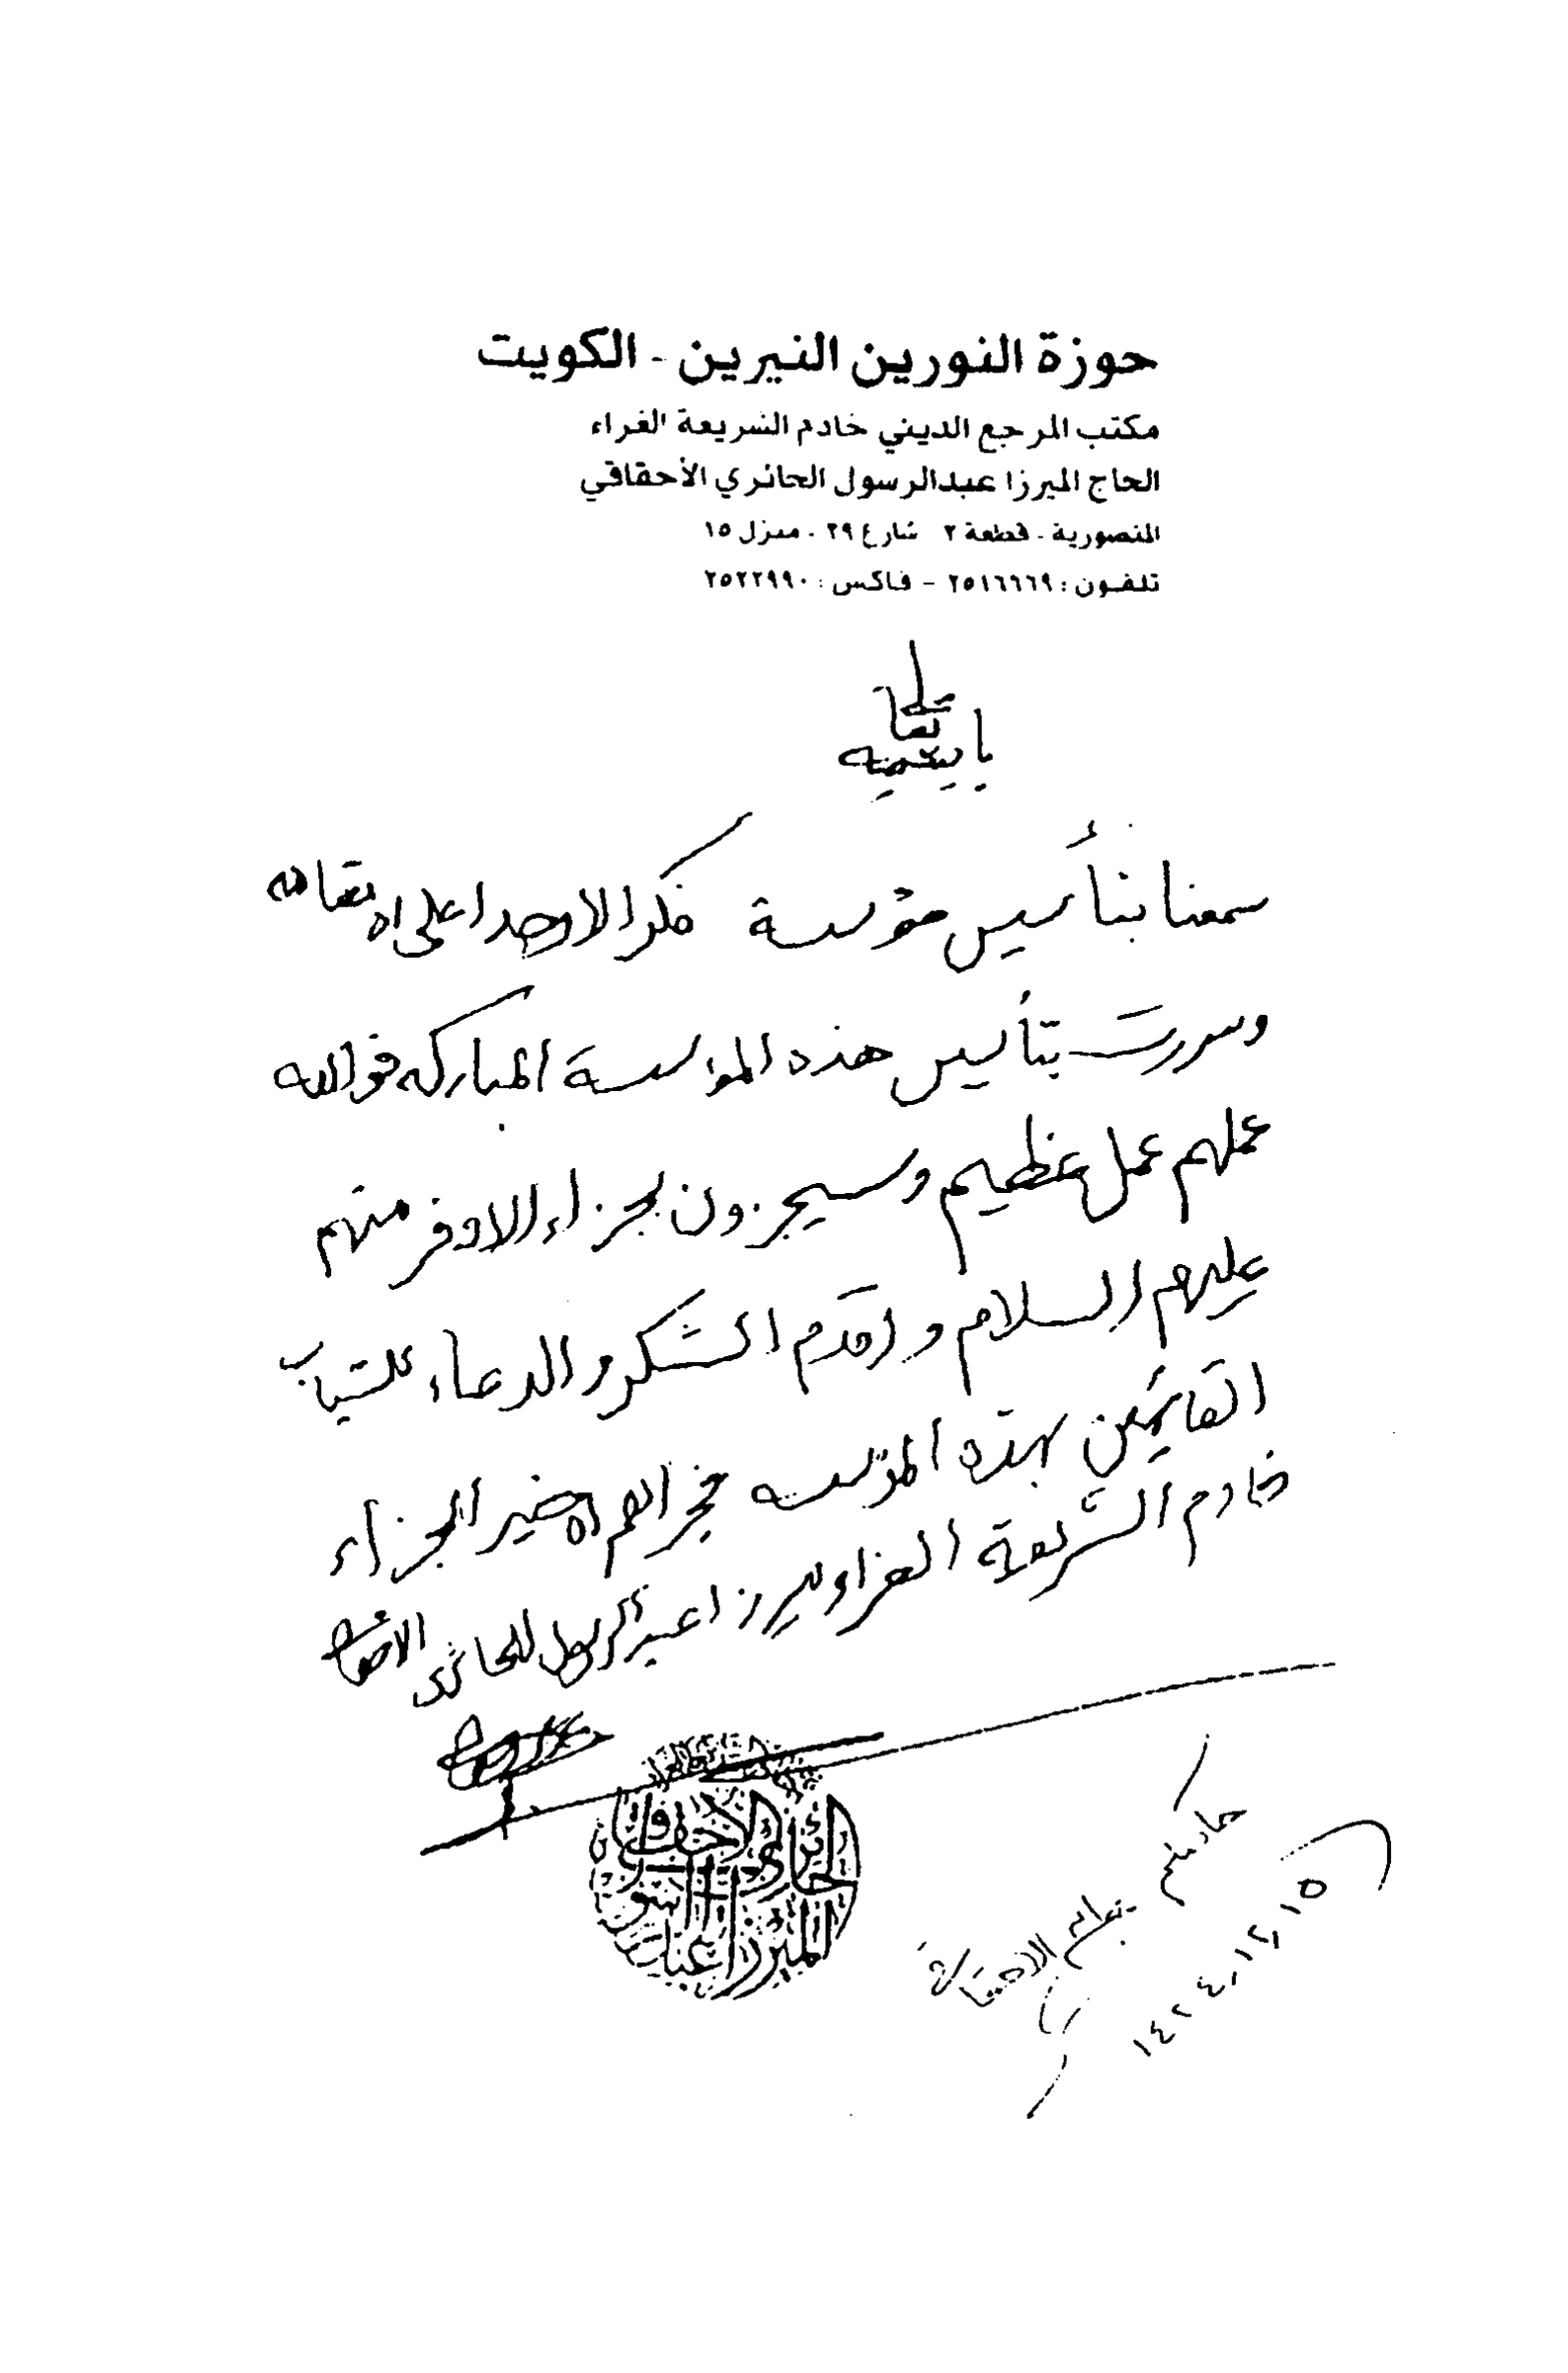 حوزة النورين النيرين - الكويت
مكتب المرجع الديني خادم الشريعة الغراء
الحاج الميرزا عبدالرسول الحائري الأحقاقي
المنصورية - قطعة ٢ شارع ٢٩ - منزل ١٥
تلفون : ٢٥١٦٦٦٩ - فاكس : ٢٥٢٢٩٩٠
باسمه تعالى
سمعنا بتأسيس مؤسسة فكر الاوحد اعلى الله مقامه
وسررت بتأسيس هذه المؤسسة المباركه فوالله
عملهم عمل عظيم وسيجزون بجزاء الاوفر منهم
عليهم السلام و اقدم الشكر و الدعاء للشباب
القائمين بهذه المؤسسه فجزاهم الله خير الجزاء
خادم الشريعة الغراء ميرزا عبدالرسول الحائرى الاحقاقي
الحائري الاحقاقي
الميرزا عبد الرسول
١٤٢٤،١٢،١٥